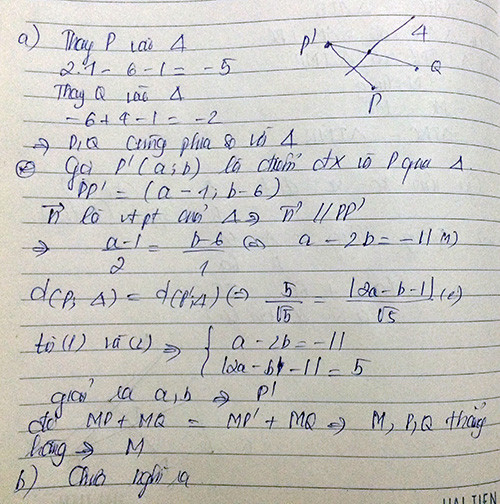 a) Thay P vào Δ
2.1 - 6 - 1 = -5
Thay Q vào Δ
-6 + 4 - 1 = -2
⇒ P,Q cùng phía so với Δ
P'
Δ
Q
P
Gọi P'(a;b) là điểm đx với P qua Δ.
PP' = (a-1; b-6)
n⃗ là vtpt của Δ ⇒ n⃗ // PP'
⇒ a-1/2 = b-6/1 (=) a - 2b = -11 (1)
d(P; Δ) = d(P';Δ) (=) 5/√5 = |2a-b-1|/√5 (2)
từ (1) và (2) ⇒ { a - 2b = -11
|2a - b - 1| = 5
giải ra a,b ⇒ P'
để MP + MQ = MP' + MQ ⇒ M, P,Q thẳng
hàng ⇒ M
b) Chưa nghĩ ra
HAI TIEN